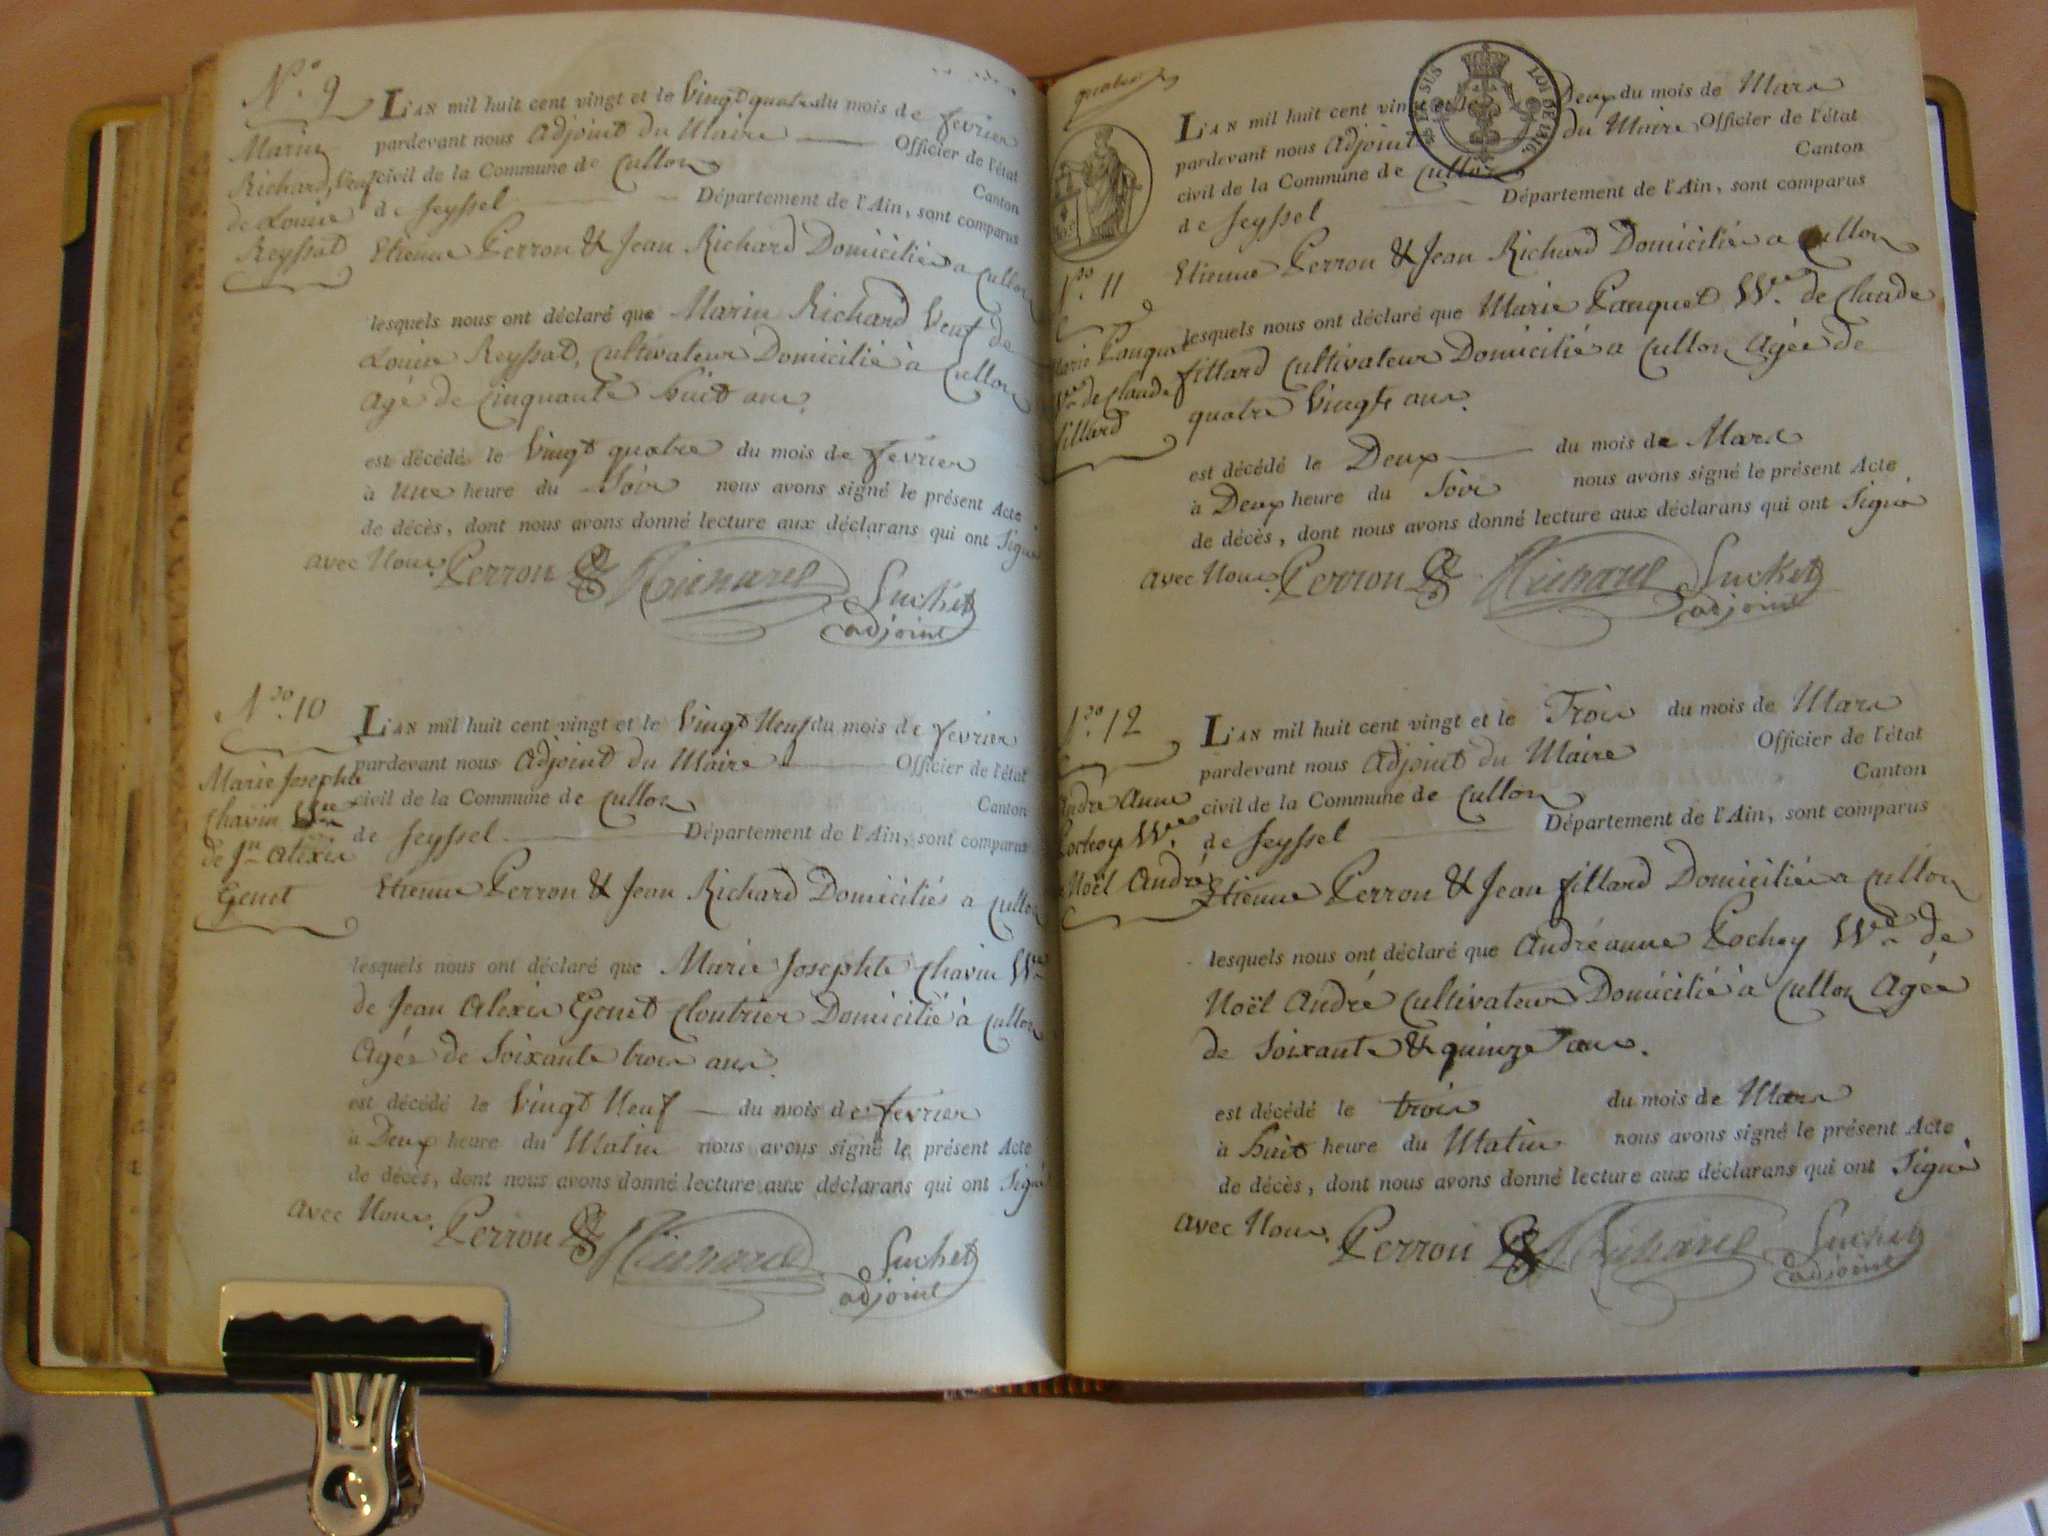 N.o 9
Marin
Richard, Veuf
de Louise
Reyssat
L'AN mil huit cent vingt et le Vingt quatre du mois de fevrier
pardevant nous Adjoint du Maire Officier de l'état
civil de la Commune de Cullon Canton
de Seyssel Département de l'Ain, sont comparus
Etienne Perron & Jean Richard Domiciliés a Cullon
lesquels nous ont déclaré que Marin Richard Veuf de
Louise Reyssat, Cultivateur Domicilié à Cullon
Agé de Cinquante huit ans.
est décédé le Vingt quatre du mois de fevrier
à une heure du Soir nous avons signé le présent Acte
de décès, dont nous avons donné lecture aux déclarans qui ont Signé
avec Nous. Perron Richard Suchet
adjoint
N.o 10
Marie Josephte
Chavin Ve
de Jn Alexis
Genet
L'AN mil huit cent vingt et le Vingt Neuf du mois de fevrier
pardevant nous Adjoint du Maire Officier de l'état
civil de la Commune de Cullon Canton
de Seyssel Département de l'Ain, sont comparus
Etienne Perron & Jean Richard Domiciliés a Cullon
lesquels nous ont déclaré que Marie Josephte Chavin Ve
de Jean Alexis Genet Cloutrier Domicilié à Cullon
Agée de Soixante trois ans.
est décédé le Vingt Neuf du mois de fevrier
à Deux heure du Matin nous avons signé le présent Acte
de décès, dont nous avons donné lecture aux déclarans qui ont Signé
avec Nous. Perron Richard Suchet
adjoint
quatre
EN SUS
LOI DE 1816.
N.o 11
Marie Panquet
Ve de Claude
fillard
L'AN mil huit cent vingt et le Deux du mois de Mars
pardevant nous Adjoint du Maire Officier de l'état
civil de la Commune de Cullon Canton
de Seyssel Département de l'Ain, sont comparus
Etienne Perron & Jean Richard Domiciliés a Cullon
lesquels nous ont déclaré que Marie Panquet Ve de Claude
fillard Cultivateur Domicilié a Cullon Agée de
quatre Vingts ans.
est décédé le Deux du mois de Mars
à Deux heure du Soir nous avons signé le présent Acte
de décès, dont nous avons donné lecture aux déclarans qui ont Signé
avec Nous. Perron Richard Suchet
adjoint
N.o 12
André Anne
Pochoy Ve
Noël André
L'AN mil huit cent vingt et le Trois du mois de Mars
pardevant nous Adjoint du Maire Officier de l'état
civil de la Commune de Cullon Canton
de Seyssel Département de l'Ain, sont comparus
Etienne Perron & Jean fillard Domiciliés a Cullon
lesquels nous ont déclaré que André anne Pochoy Ve de
Noël André Cultivateur Domicilié à Cullon Agée
de Soixante & quinze ans.
est décédé le trois du mois de Mars
à huit heure du Matin nous avons signé le présent Acte
de décès, dont nous avons donné lecture aux déclarans qui ont Signé
avec Nous. Perron Richard Suchet
adjoint